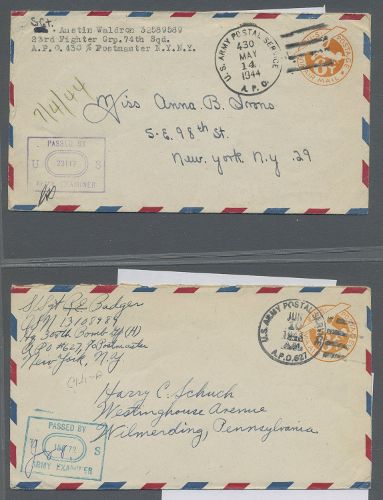 Sgt.
Austin Waldron 32589589
23rd Fighter Grp. 74th Sqd.
A.P.O. 430 % Postmaster N.Y.N.Y.
U.S. ARMY POSTAL SERVICE
430
MAY
14
1944
A.P.O.
AIR MAIL
7/4/44
Miss Anna B. Irons
5-E. 98th St.
New York. N.Y. 29
PASSED BY
U S
ARMY EXAMINER
S/Sgt Badger
ASN 13105989
Hq 308th Bomb Gp (H)
APO #627, % Postmaster
New York, N.Y.
China
U.S. ARMY POSTAL SERVICE
JUN
A.P.O. 627
Harry C. Schuch
Westinghouse Avenue
Wilmerding, Pennsylvania
PASSED BY
U S
ARMY EXAMINER